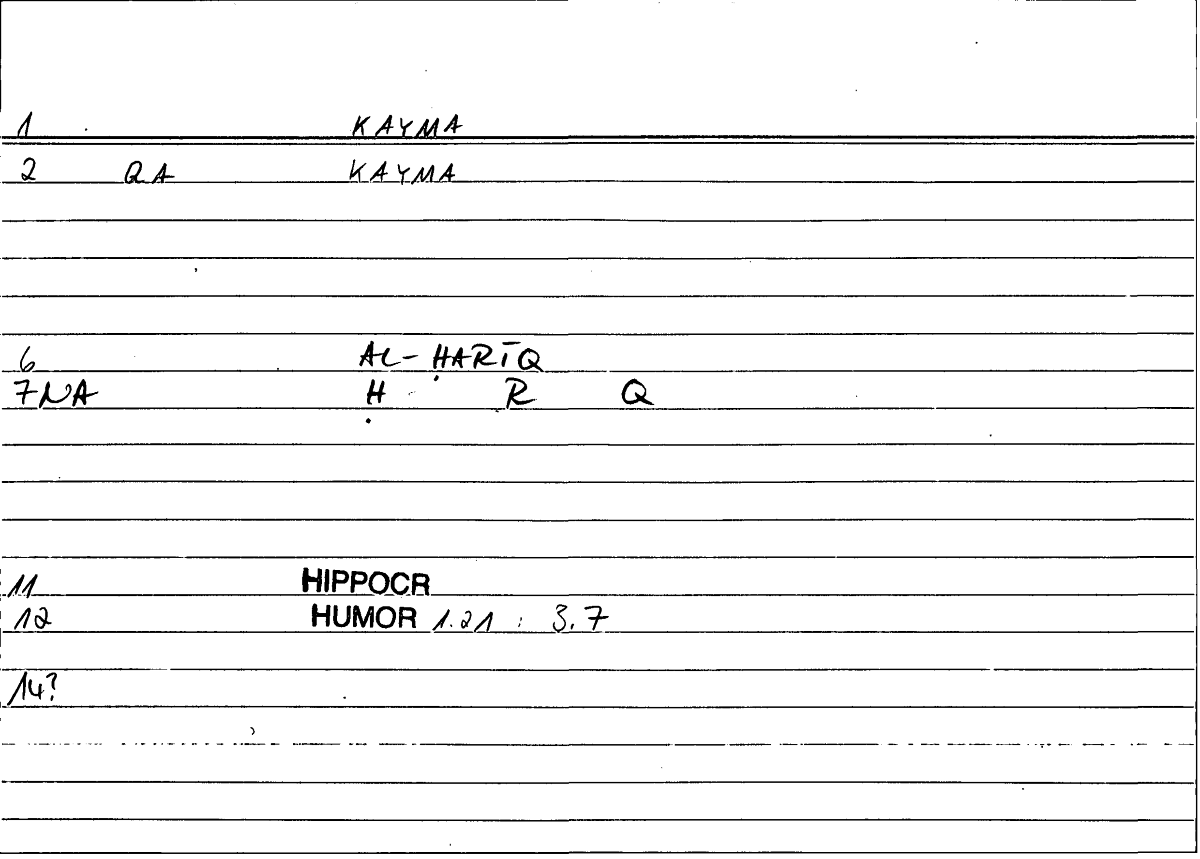 1 KAYMA
2 QA KAYMA
6 AL-ḤARĪQ
7NA Ḥ R Q
11 HIPPOCR
12 HUMOR 1.21 : 3.7
14?